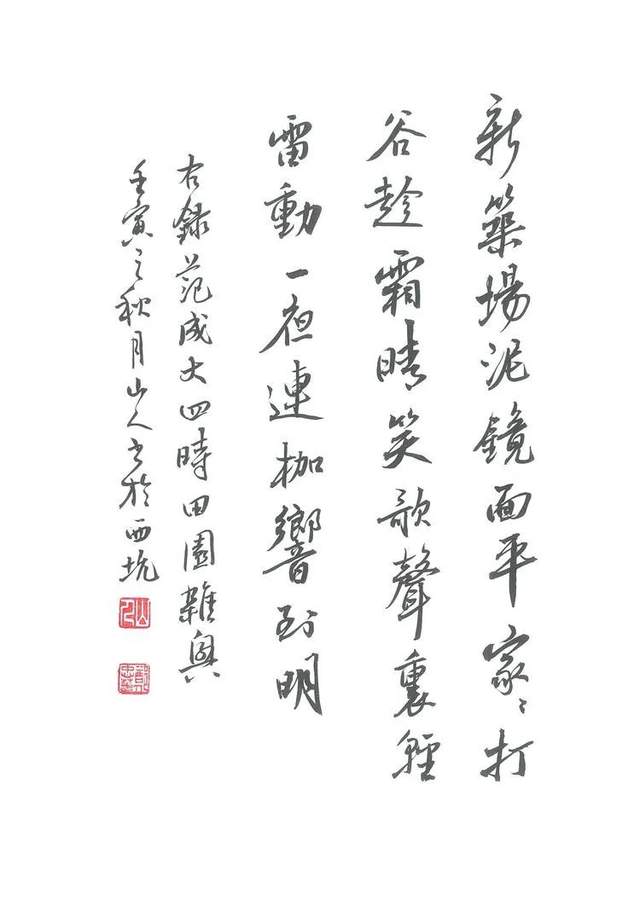 新築場泥鏡面平家〻打
谷趁霜晴笑歌聲裏輕
雷動一夜連枷響到明
右録范成大四時田園雜興
壬寅之秋月山人书於西坑
山人